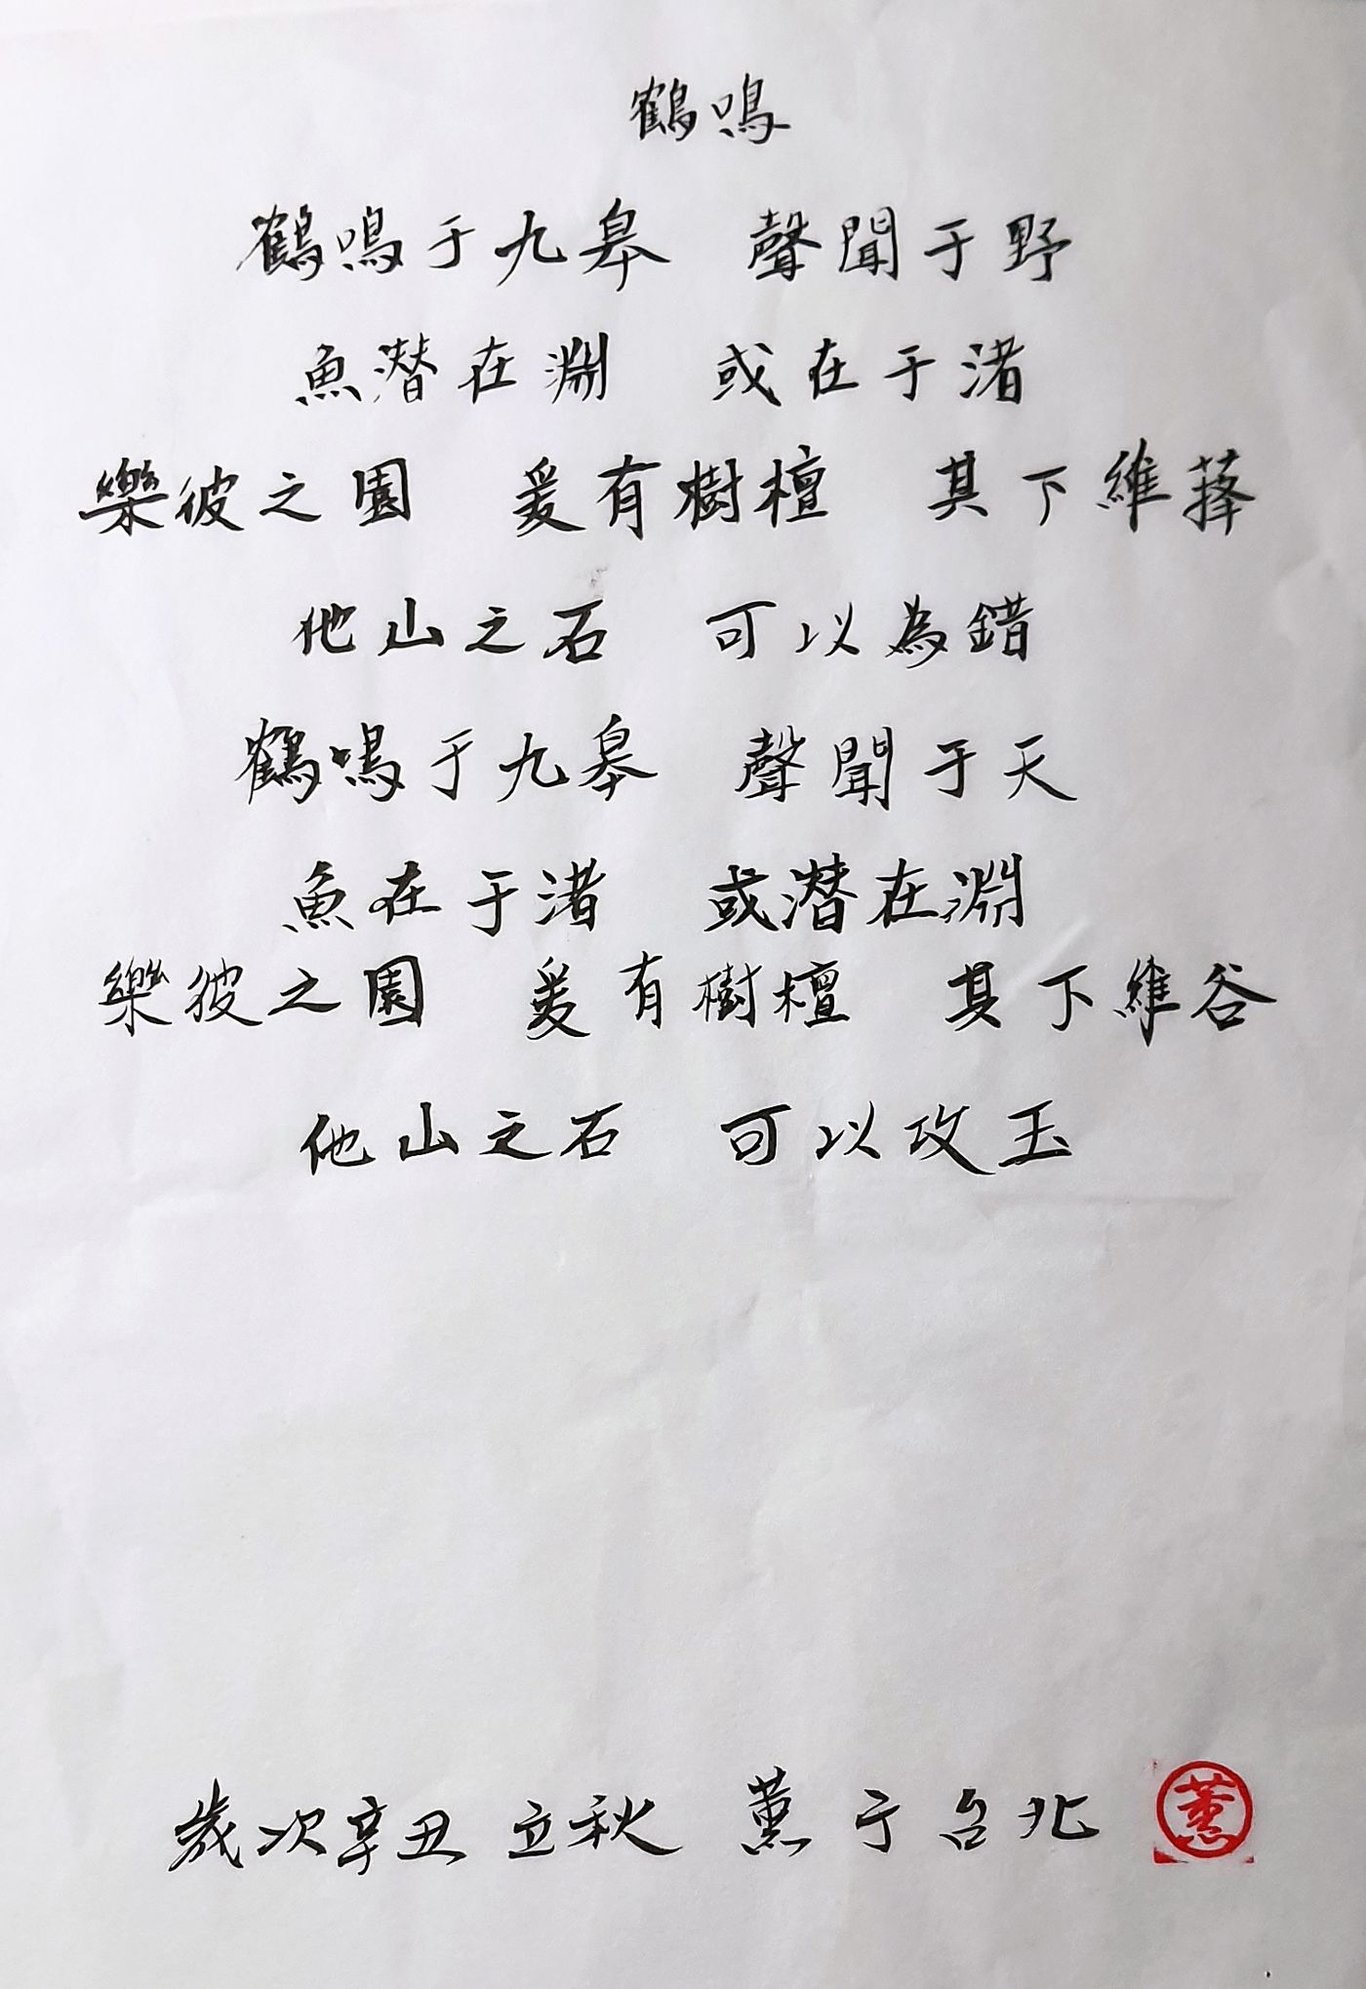 鶴鳴
鶴鳴于九皋　聲聞于野
魚潛在淵　或在于渚
樂彼之園　爰有樹檀　其下維蘀
他山之石　可以為錯
鶴鳴于九皋　聲聞于天
魚在于渚　或潛在淵
樂彼之園　爰有樹檀　其下維谷
他山之石　可以攻玉
歲次辛丑 立秋　蕙 于 台北
蕙